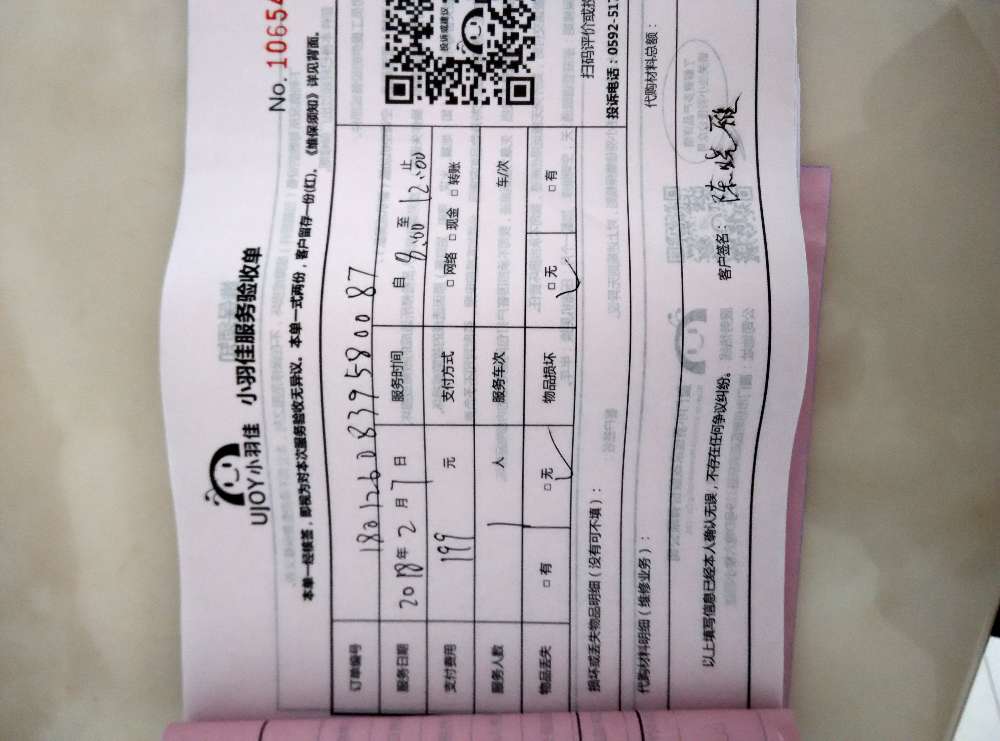 No. 10654
UJOY小羽佳 小羽佳服务验收单
本单一经核签，即视为对本次服务验收无异议。本单一式两份，客户留存一份(红)。《维保须知》详见背面。
订单编号 1801260839580087
服务日期 2018年2月7日 服务时间 自 8:00 至 12:00 止
支付费用 199 元 支付方式 □ 网络 □ 现金 □ 转账
服务人数 1 人 服务车次 车/次
物品丢失 □ 有 □ 无 ✓ 物品损坏 □ 无 ✓ □ 有
损坏或丢失物品明细（没有可不填）：
投诉或建议
扫码评价或投
投诉电话：0592-517
代购材料明细（维修业务）： 代购材料总额：
以上填写信息已经本人确认无误，不存在任何争议纠纷。 客户签名：陈晓雁